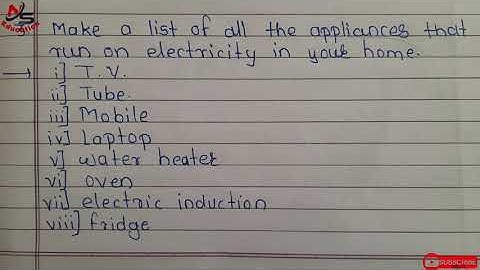 AJS
Education
Make a list of all the appliances that
run on electricity in your home.
→ i] T.V.
ii] Tube.
iii] Mobile
iv] Laptop
v] water heater
vi] oven
vii] electric induction
viii] fridge
SUBSCRIBE